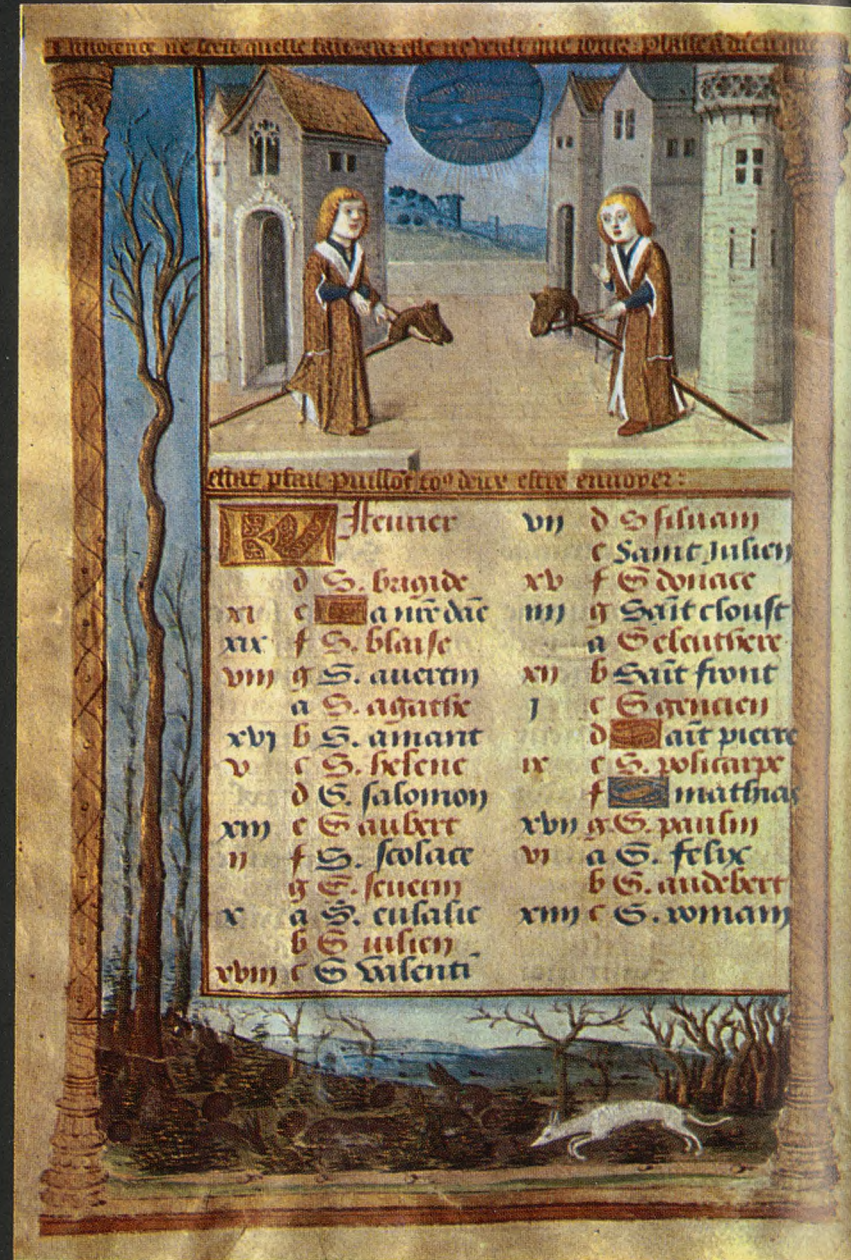 Innocence ne scet quelle fait car elle ne veult que iouer: plaise a dieu que
estat pfait puissõt toꝰ deux estre enuoyer:
KL Feurier
d S. brigide
xi e a nr̃e dãe
xix f S. blaise
viii g S. auertin
a S. agathe
xvi b S. amant
v c S. helene
d S. salomon
xiii e S aubert
ii f S. scolace
g S. seuerin
x a S. eulalie
b S iulien
xviii c S Valentĩ
vii d S siluain
e Saint Julien
xv f S donace
iiii g Saĩt cloust
a S eleuthere
xii b Saĩt front
j c S gencien
d aĩt pierre
ix e S. policarpe
f mathias
xvii g S. paulin
vi a S. felix
b S. audebert
xiiii c S. romain